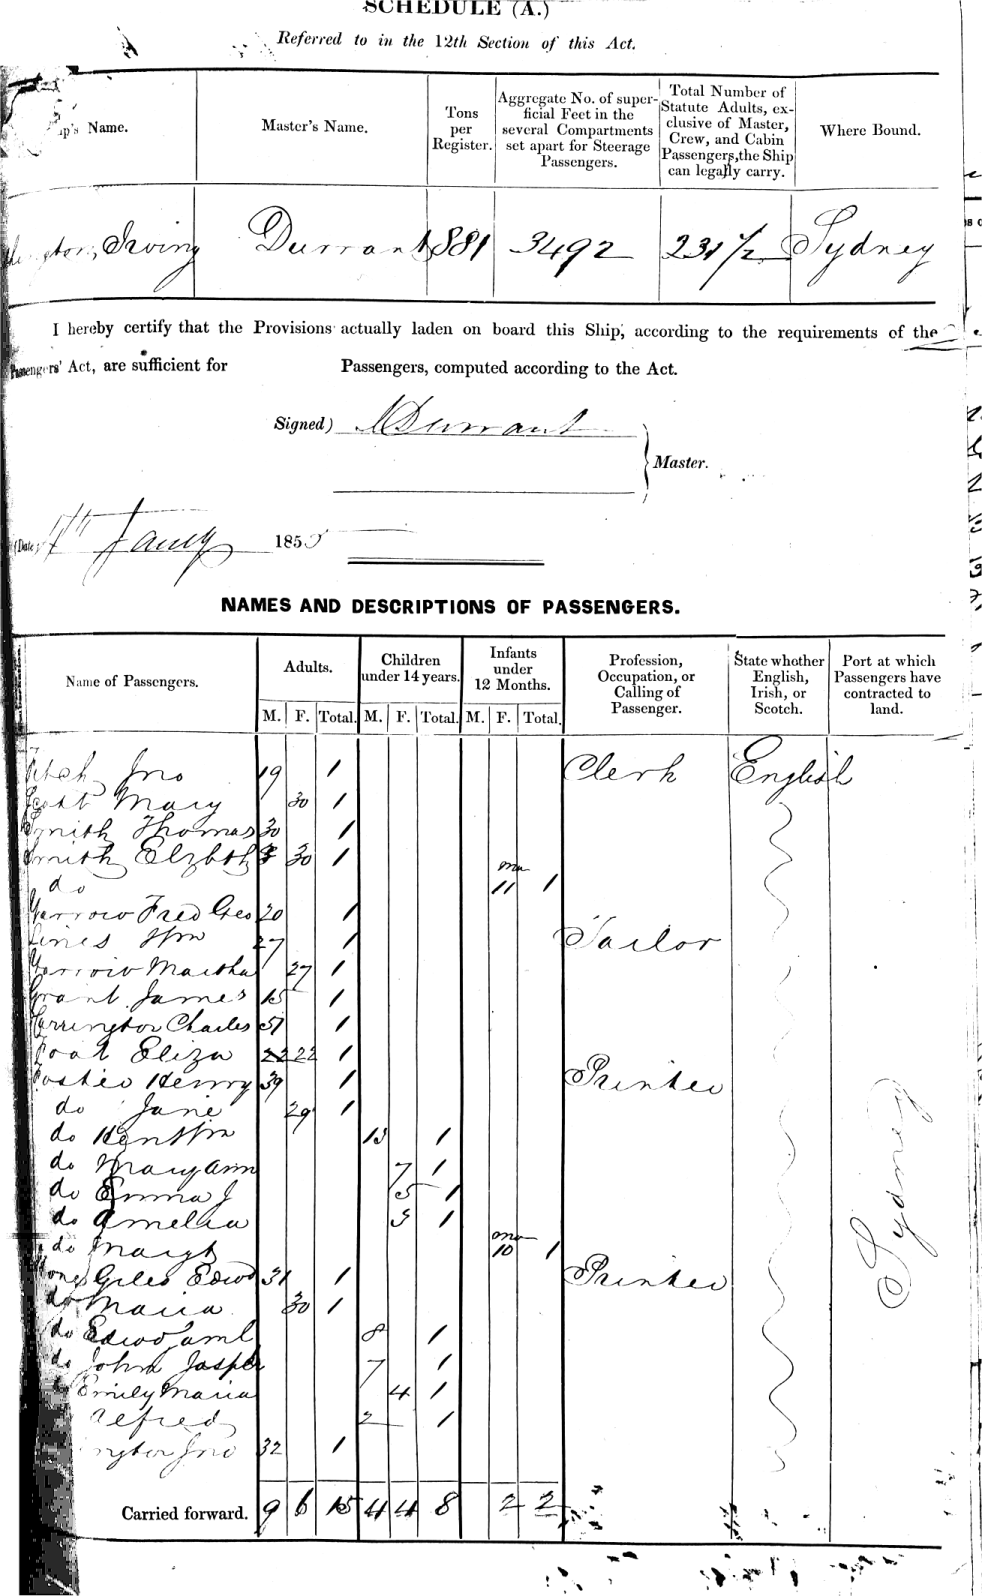 SCHEDULE (A.)
Referred to in the 12th Section of this Act.
Name. Master's Name. Tons per Register. Aggregate No. of superficial Feet in the several Compartments set apart for Steerage Passengers. Total Number of Statute Adults, exclusive of Master, Crew, and Cabin Passengers, the Ship can legally carry. Where Bound.
Irving Durrant 881 3492 231 1/2 Sydney
I hereby certify that the Provisions actually laden on board this Ship, according to the requirements of the
Passengers' Act, are sufficient for Passengers, computed according to the Act.
Signed) Durrant
Master.
(Date) Jany 185
NAMES AND DESCRIPTIONS OF PASSENGERS.
Name of Passengers. Adults. Children under 14 years. Infants under 12 Months. Profession, Occupation, or Calling of Passenger. State whether English, Irish, or Scotch. Port at which Passengers have contracted to land.
M. F. Total. M. F. Total. M. F. Total.
Jno 19 1 Clerk English
Mary 30 1
Smith Thomas 30 1
Smith Elzbth 30 1
do mo 11 1
Fred Geo 20 1
Wm 27 1 Tailor
Martha 27 1
Grant James 15 1
Charles 51 1
Eliza 22 22 1
Henry 39 1 Printer
do Jane 29 1
do Hen Wm 13 1
do Mary Ann 7 1
do Emma J 5 1
do Amelia 3 1
do Margt mo 10 1
Giles Edwd 31 1 Printer
do Maria 30 1
do Edwd 8 1
do John Jasper 7 1
Emily Maria 4 1
Alfred 2 1
Jno 32 1
Sydney
Carried forward. 9 6 15 4 4 8 2 2